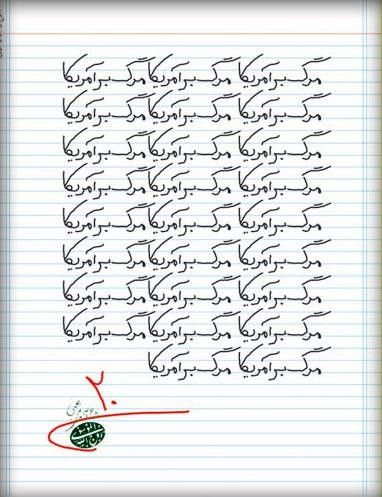 مرگ بر آمریکا مرگ بر آمریکا مرگ بر آمریکا
مرگ بر آمریکا مرگ بر آمریکا مرگ بر آمریکا
مرگ بر آمریکا مرگ بر آمریکا مرگ بر آمریکا
مرگ بر آمریکا مرگ بر آمریکا مرگ بر آمریکا
مرگ بر آمریکا مرگ بر آمریکا مرگ بر آمریکا
مرگ بر آمریکا مرگ بر آمریکا مرگ بر آمریکا
مرگ بر آمریکا مرگ بر آمریکا مرگ بر آمریکا
مرگ بر آمریکا مرگ بر آمریکا مرگ بر آمریکا
مرگ بر آمریکا مرگ بر آمریکا
۲۰